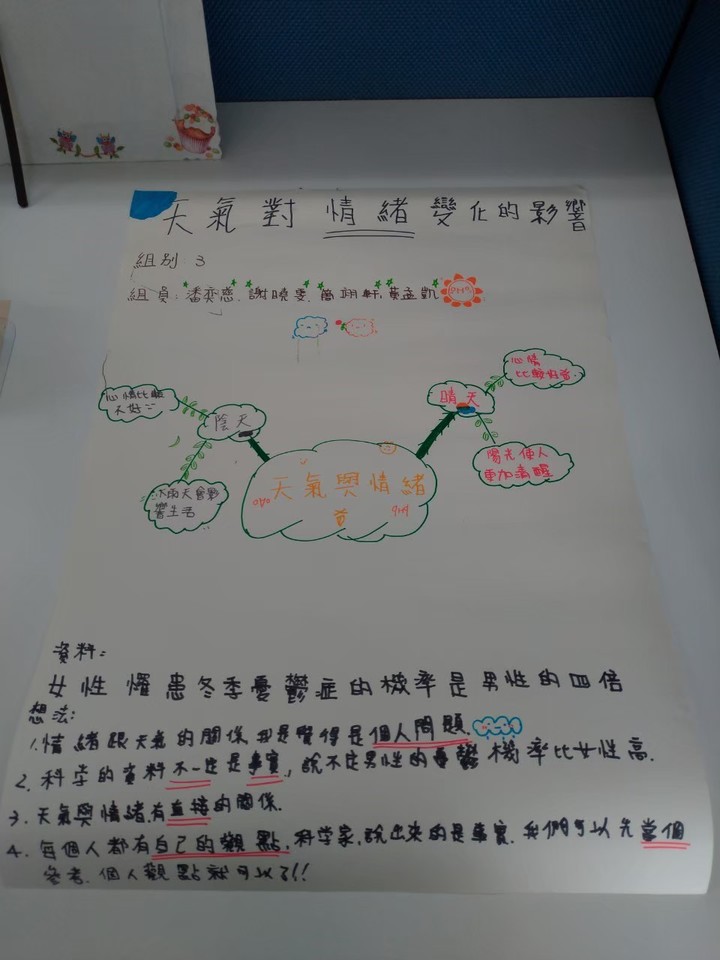 天氣對情緒變化的影響
組別：3
組員：潘奕慈、謝曉雯、簡翊軒、黃孟凱
心情比較好
心情比較不好
晴天
陰天
陽光使人
更加清醒
下雨天會影
響生活
天氣與情緒
資料：
女性罹患冬季憂鬱症的機率是男性的四倍
想法：
1.情緒跟天氣的關係我是覺得是個人問題.
2.科学的資料不一定是事實，說不定男性的憂鬱機率比女性高.
3.天氣與情緒有直接的關係.
4.每個人都有自己的觀點，科学家說出來的是事實，我們可以先當個
參考.個人觀點就可以了!!